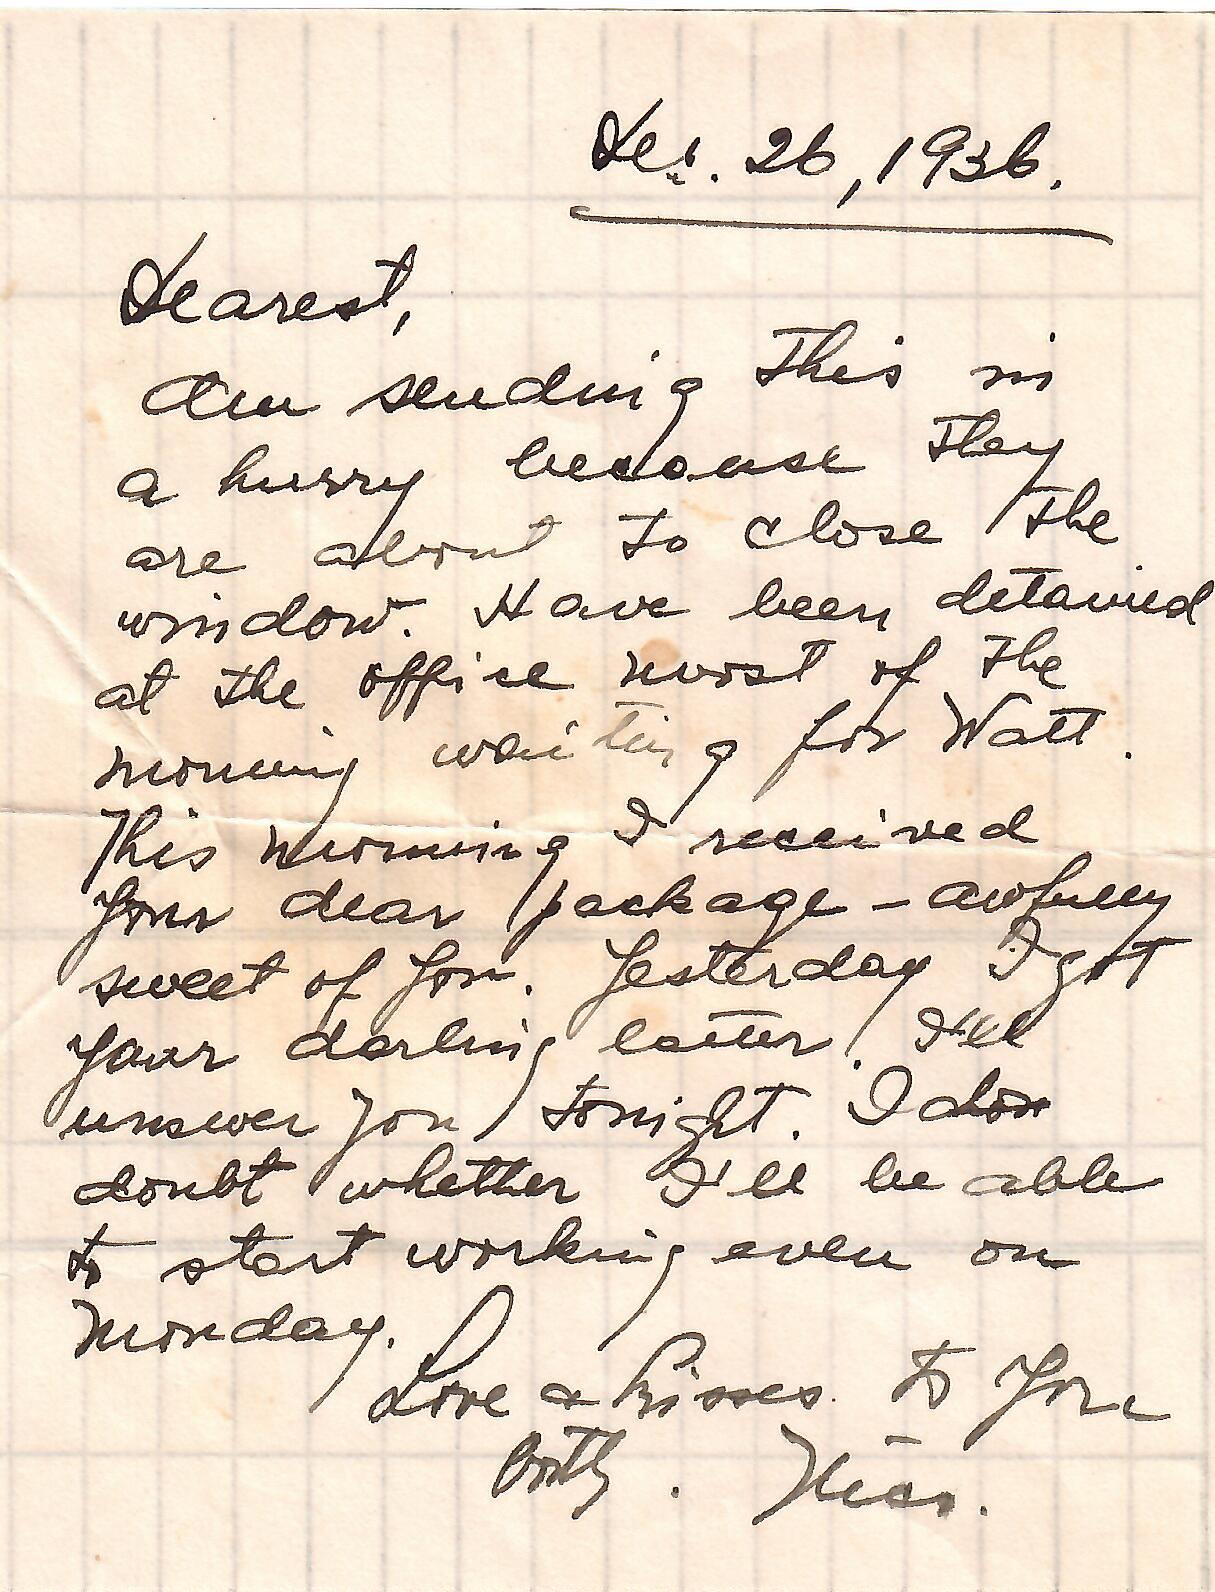 Dec. 26, 1936.
Dearest,
Am sending this in
a hurry because they
are about to close the
window. Have been detained
at the office most of the
morning waiting for Watt.
This morning I received
your dear package - awfully
sweet of you. Yesterday I got
your darling letter. I'll
answer you tonight. I
doubt whether I'll be able
to start working even on
Monday.
Love & kisses to you
both.